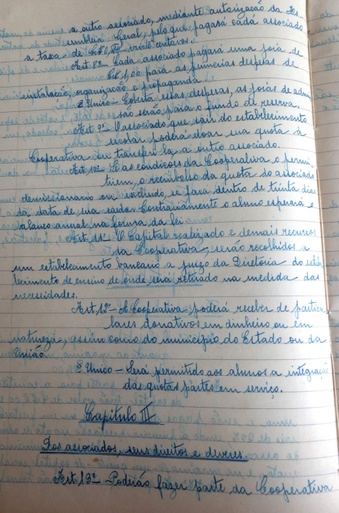 a outro associado, mediante autorização da As
sembléia Geral, pelo que pagará cada associado
a taxa de vinte centavos.
Art. 8º Cada associado pagará uma joia de
para as primeiras despesas de
instalação, organização e propaganda.
§ Único - Coberta essas despesas, as joias de admis
são serão para o fundo de reserva.
Art. 9º O associado que sair do estabelecimento
escolar poderá doar sua quota à
Cooperativa ou transferi-la a outro associado.
Art. 10º Se as condições da Cooperativa o permi
tirem, o reembolso da quota do associado
demissionario ou excluido, se fara dentro de trinta dias
da data de sua saida. Contrariamente o aluno esperará o
balanço anual, na forma da lei.
Art. 11º O Capital realizado e demais recursos
da Cooperativa, serão recolhidos a
um estabelecimento bancario a juizo da Diretoria do estabe
lecimento de ensino de onde será retirado na medida das
necessidades.
Art. 12º A Cooperativa poderá receber de particu
lares donativos em dinheiro ou em
natureza, assim como do municipio do Estado ou da
União.
§ Unico - Será permitido aos alunos a integração
das quotas partes em serviço.
Capitulo III
Dos associados, seus direitos e deveres
Art. 13º Poderão fazer parte da Cooperativa